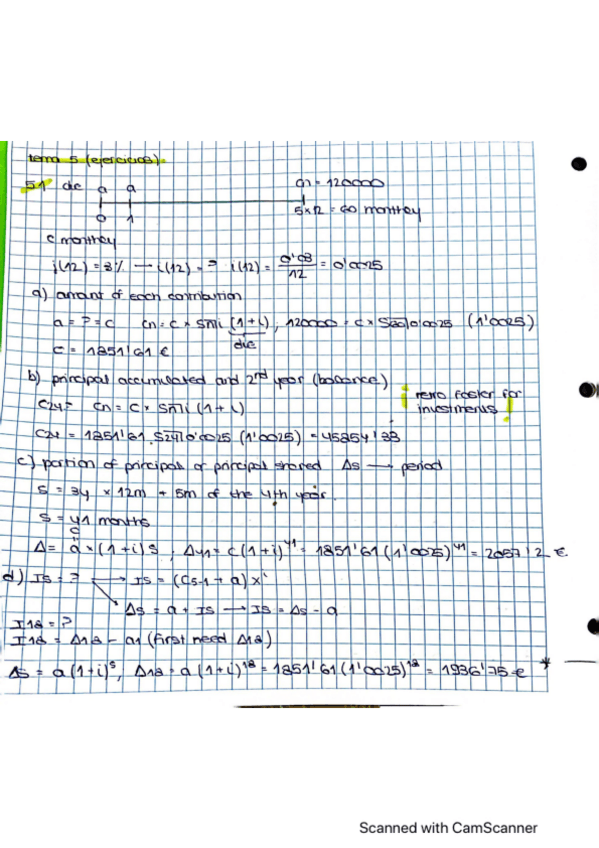 tema 5 (ejercicios)
51 die a a Cn = 120000
0 1 5x12 = 60 monthly
c monthly
j(12) = 3% — i(12) = ? i(12) = 0'03/12 = 0'0025
a) amount of each contribution
a = ? = c Cn = c x Sn̅|i (1+i), 120000 = c x S60̅|0'0025 (1'0025)
die
c = 1851'61 €
b) principal accumulated and 2nd year (balance)
retro faster for
investments
C24 = Cn = c x Sn̅|i (1+i)
C24 = 1851'61 . S24̅|0'0025 (1'0025) = 45854'33
c) portion of principals or principal shared Δs → period
s = 3y x 12m + 5m of the 4th year.
s = 41 months
c
Δ = a x (1+i)s, Δ41 = c(1+i)^41 = 1851'61 (1'0025)^41 = 2057'2 €
d) Is = ? → Is = (Cs-1 + a) x i
Δs = a + Is → Is = Δs - a
I18 = ?
I18 = Δ18 - a1 (first need Δ18)
Δs = a(1+i)^s, Δ18 = a(1+i)^18 = 1851'61 (1'0025)^18 = 1936'75 € *
Scanned with CamScanner